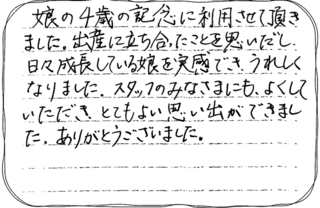 娘の4歳の記念に利用させて頂き
ました。出産に立ち合ったことを思いだし、
日々成長している娘を実感でき、うれしく
なりました。スタッフのみなさまにも、よくして
いただき、とてもよい思い出ができまし
た。ありがとうございました。